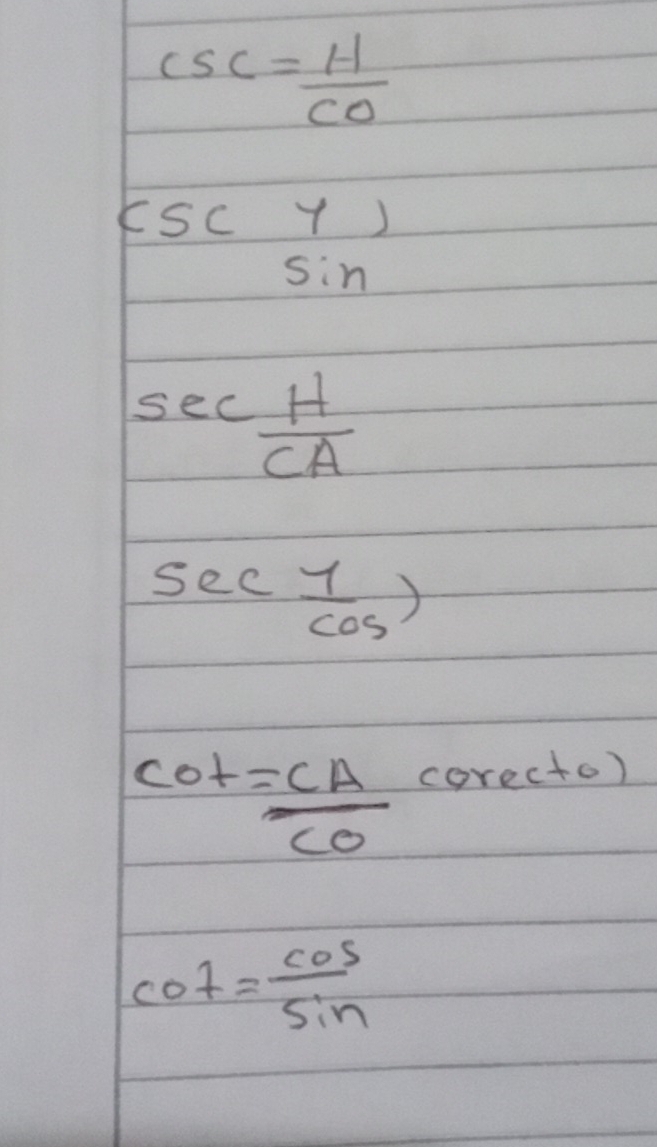 csc = H
CO
csc 1 )
sin
sec H
CA
sec 1 )
cos
cot = CA corecto)
CO
cot = cos
sin